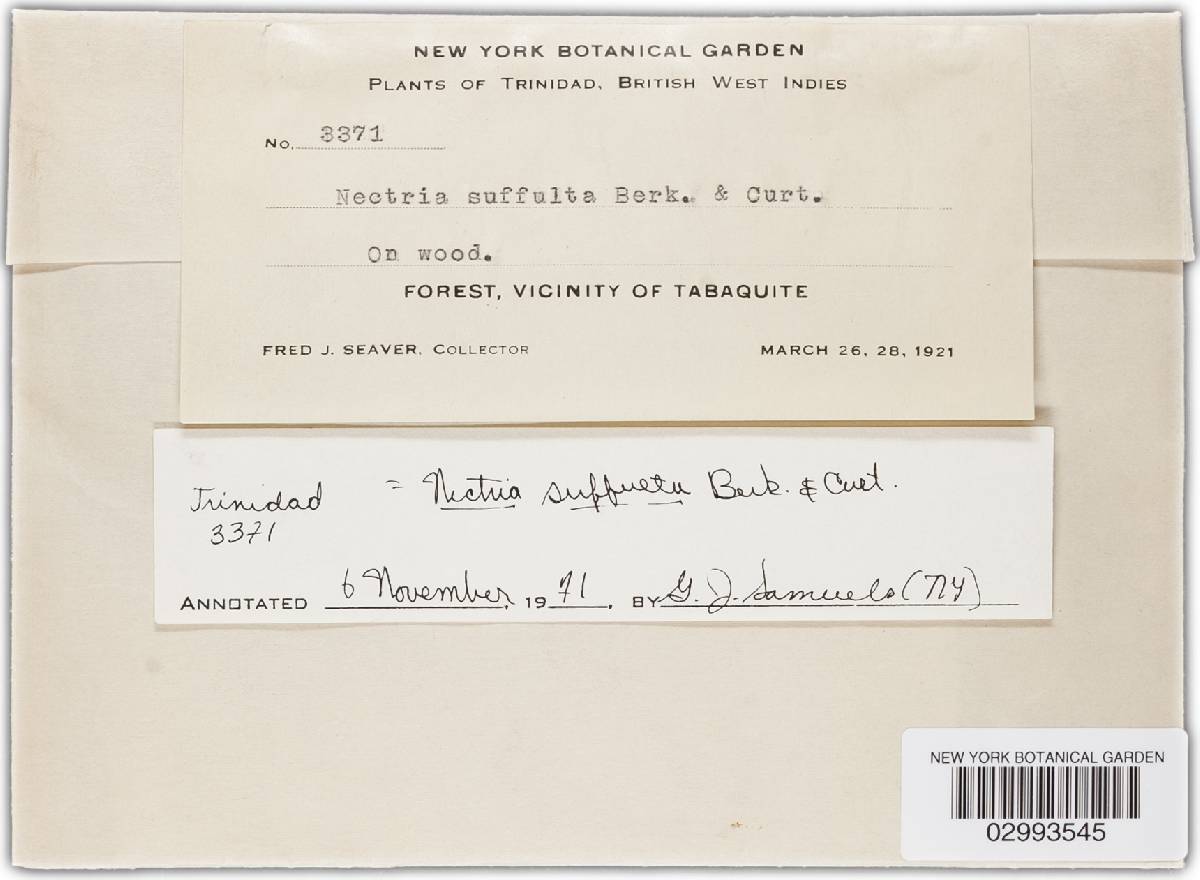 NEW YORK BOTANICAL GARDEN
PLANTS OF TRINIDAD, BRITISH WEST INDIES
No. 3371
Nectria suffulta Berk. & Curt.
On wood.
FOREST, VICINITY OF TABAQUITE
FRED J. SEAVER, COLLECTOR MARCH 26, 28, 1921
Trinidad = Nectria suffulta Berk. & Curt.
3371
ANNOTATED 6 November, 1971, BY G. J. Samuels (NY)
NEW YORK BOTANICAL GARDEN
02993545